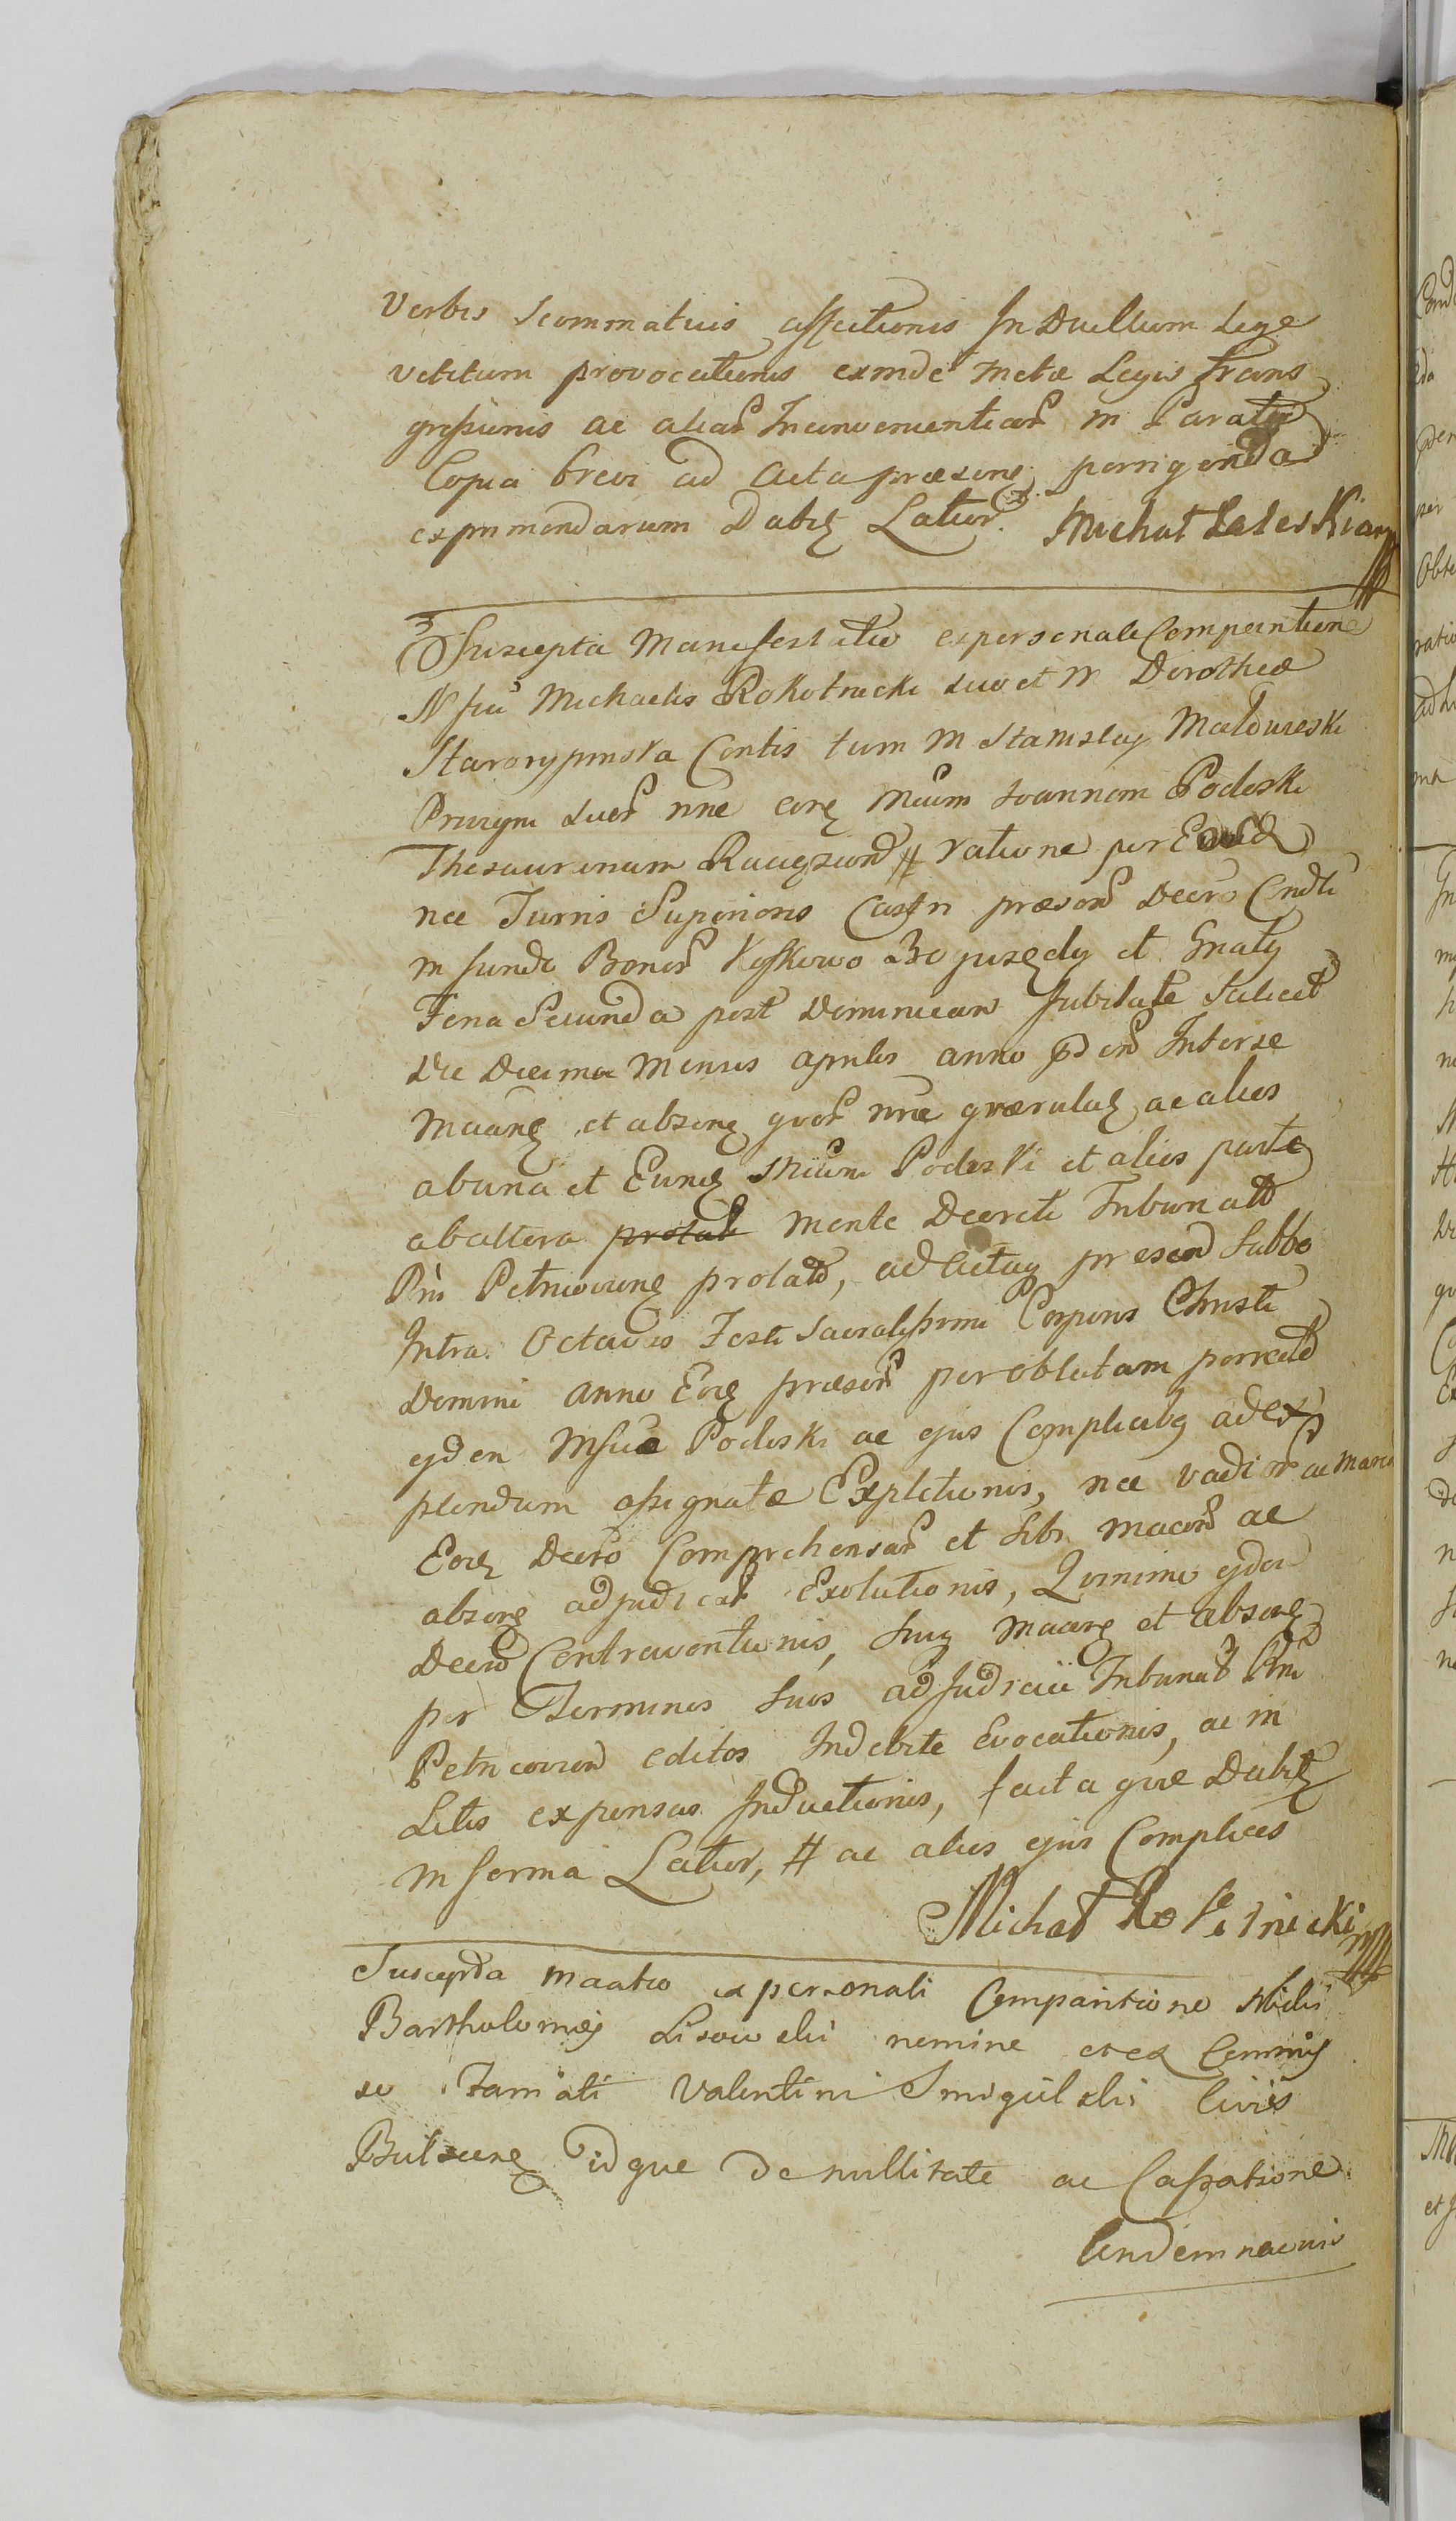 Verbis Scommaticis affectionis In Duellum Lege
vetitum provocationis exinde metæ Legis Trans
gressionis ac aliar Inconvenientiar in Parata
Copia brevi ad Acta præsens porrigenda
exprimendarum Datq Latior. Michał Zaleski
Suscepta Manifestatio ex personali Comparitione
N sui Michaelis Rokotnicki suo et M Dorotheæ
Starorypinska Contis tum M Stanislai
Privigni suor nne eorq Mcum Joannem Podoski
Thesaurinum # ratione per
næ Turris Superioris Castri præsen Decro Cndti
in fundo Bonor et Gnatq
Feria Secunda post Dominicam Jubilate Scilicet
die Decima Mensis Aprilis anno pden Inter se
Maanq et absenq quor nne quærulatq ac alios
ab una et Eunq Mcum Podoski et alios parte
ab altera prolati mente Decreti Tribunat
Rni Petricovienq prolat, ad Acta presen Sabbo
Intra Octavas Festi Sacratissimi Corporis Christi
Domini anno Eoq præsen per oblatam porrect
ejden Msuæ Podoski ac ejus Complicibq ad ex
plendum assignatæ Expletionis, nec vadior ac
Eoq Decro Comprehensar et sibi maaen ac
absenq adjudicat Exolutionis, Quinimo ejden
Decro Contraventionis, Maarq et absenq
per Terminos suos ad Judicia Tribunat Rni
Petricovien editos Indebite Evocationis, ac in
Litis expensas Inductionis, facta quæ Datq
in forma Latior, # ac alios ejus Complices
Michał Rokitnicki mp
Suscepta maatio ex personali Comparitione Nbilis
Bartholomej Lisowski nomine et ex Commis
so Famati Valentini Smigulski Civis
Pultuenq id que de nullitate ac Cassatione
Condemnaonis